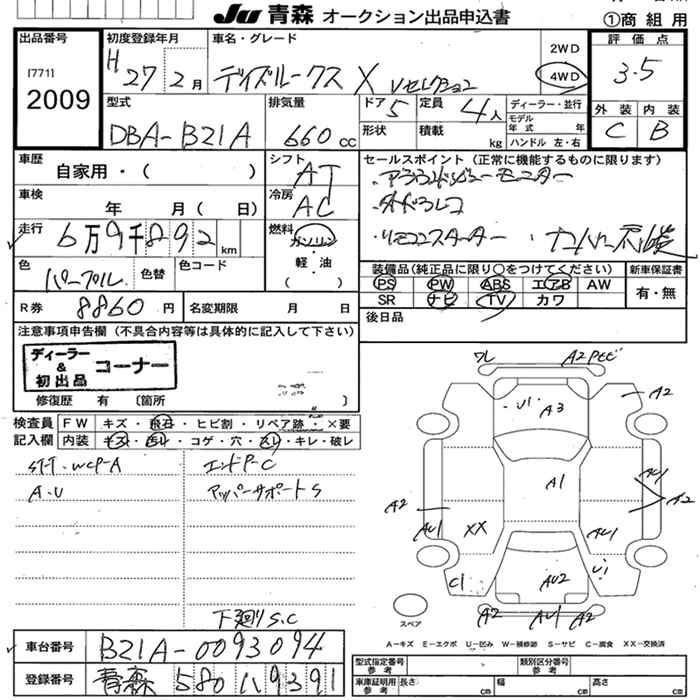 JU 青森 オークション出品申込書
①商 組 用
出品番号
[771]
2009
初度登録年月
H 27 2月
車名・グレード
デイズルークス X Vセレクション
2WD
4WD
評 価 点
3.5
外 装
内 装
C
B
型式
DBA-B21A
排気量
660cc
ドア 5
定員 4人
形状
積載
kg
ディーラー・並行
モデル
年 式
年
ハンドル 左・右
車歴
自家用・(
)
シフト
AT
車検
年 月(
日)
冷房
AC
走行
6万9千892km
燃料
ガソリン
軽・油
( )
色
パープル
色替
色コード
R券
8860円
名変期限
月 日
セールスポイント(正常に機能するものに限ります)
・アラウンドビューモニター
・外ドラレコ
・リモコンスターター
ナンバー
装備品(純正品に限り○をつけてください)
新車保証書
PS PW ABS エアB AW
有・無
SR ナビ TV カワ
後日品
注意事項申告欄(不具合内容等は具体的に記入して下さい)
ディーラー
&
初出品
コーナー
修復歴 有 〔箇所
〕
検査員
記入欄
FW キズ・飛石・ヒビ割・リペア跡・×要
内装 キズ・汚レ・コゲ・穴・スレ・キレ・破レ
STT・WCP-A
エンドP-C
A・U
アッパーサポートS
下廻りS.C
ワレ
A2
U1
A3
A2
A1
AU1
A2
A2
AU1
XX
AU1
C1
AU2
U1
スペア
A2
AU1
A2
A-キズ E-エクボ U-凹み W-補修跡 S-サビ C-腐食 XX-交換済
車台番号
B21A-0093094
登録番号
青森 580 ハ 9391
型式指定番号
参 考
類別区分番号
参 考
車庫証明用
参 考
長さ
cm
幅
cm
高さ
cm